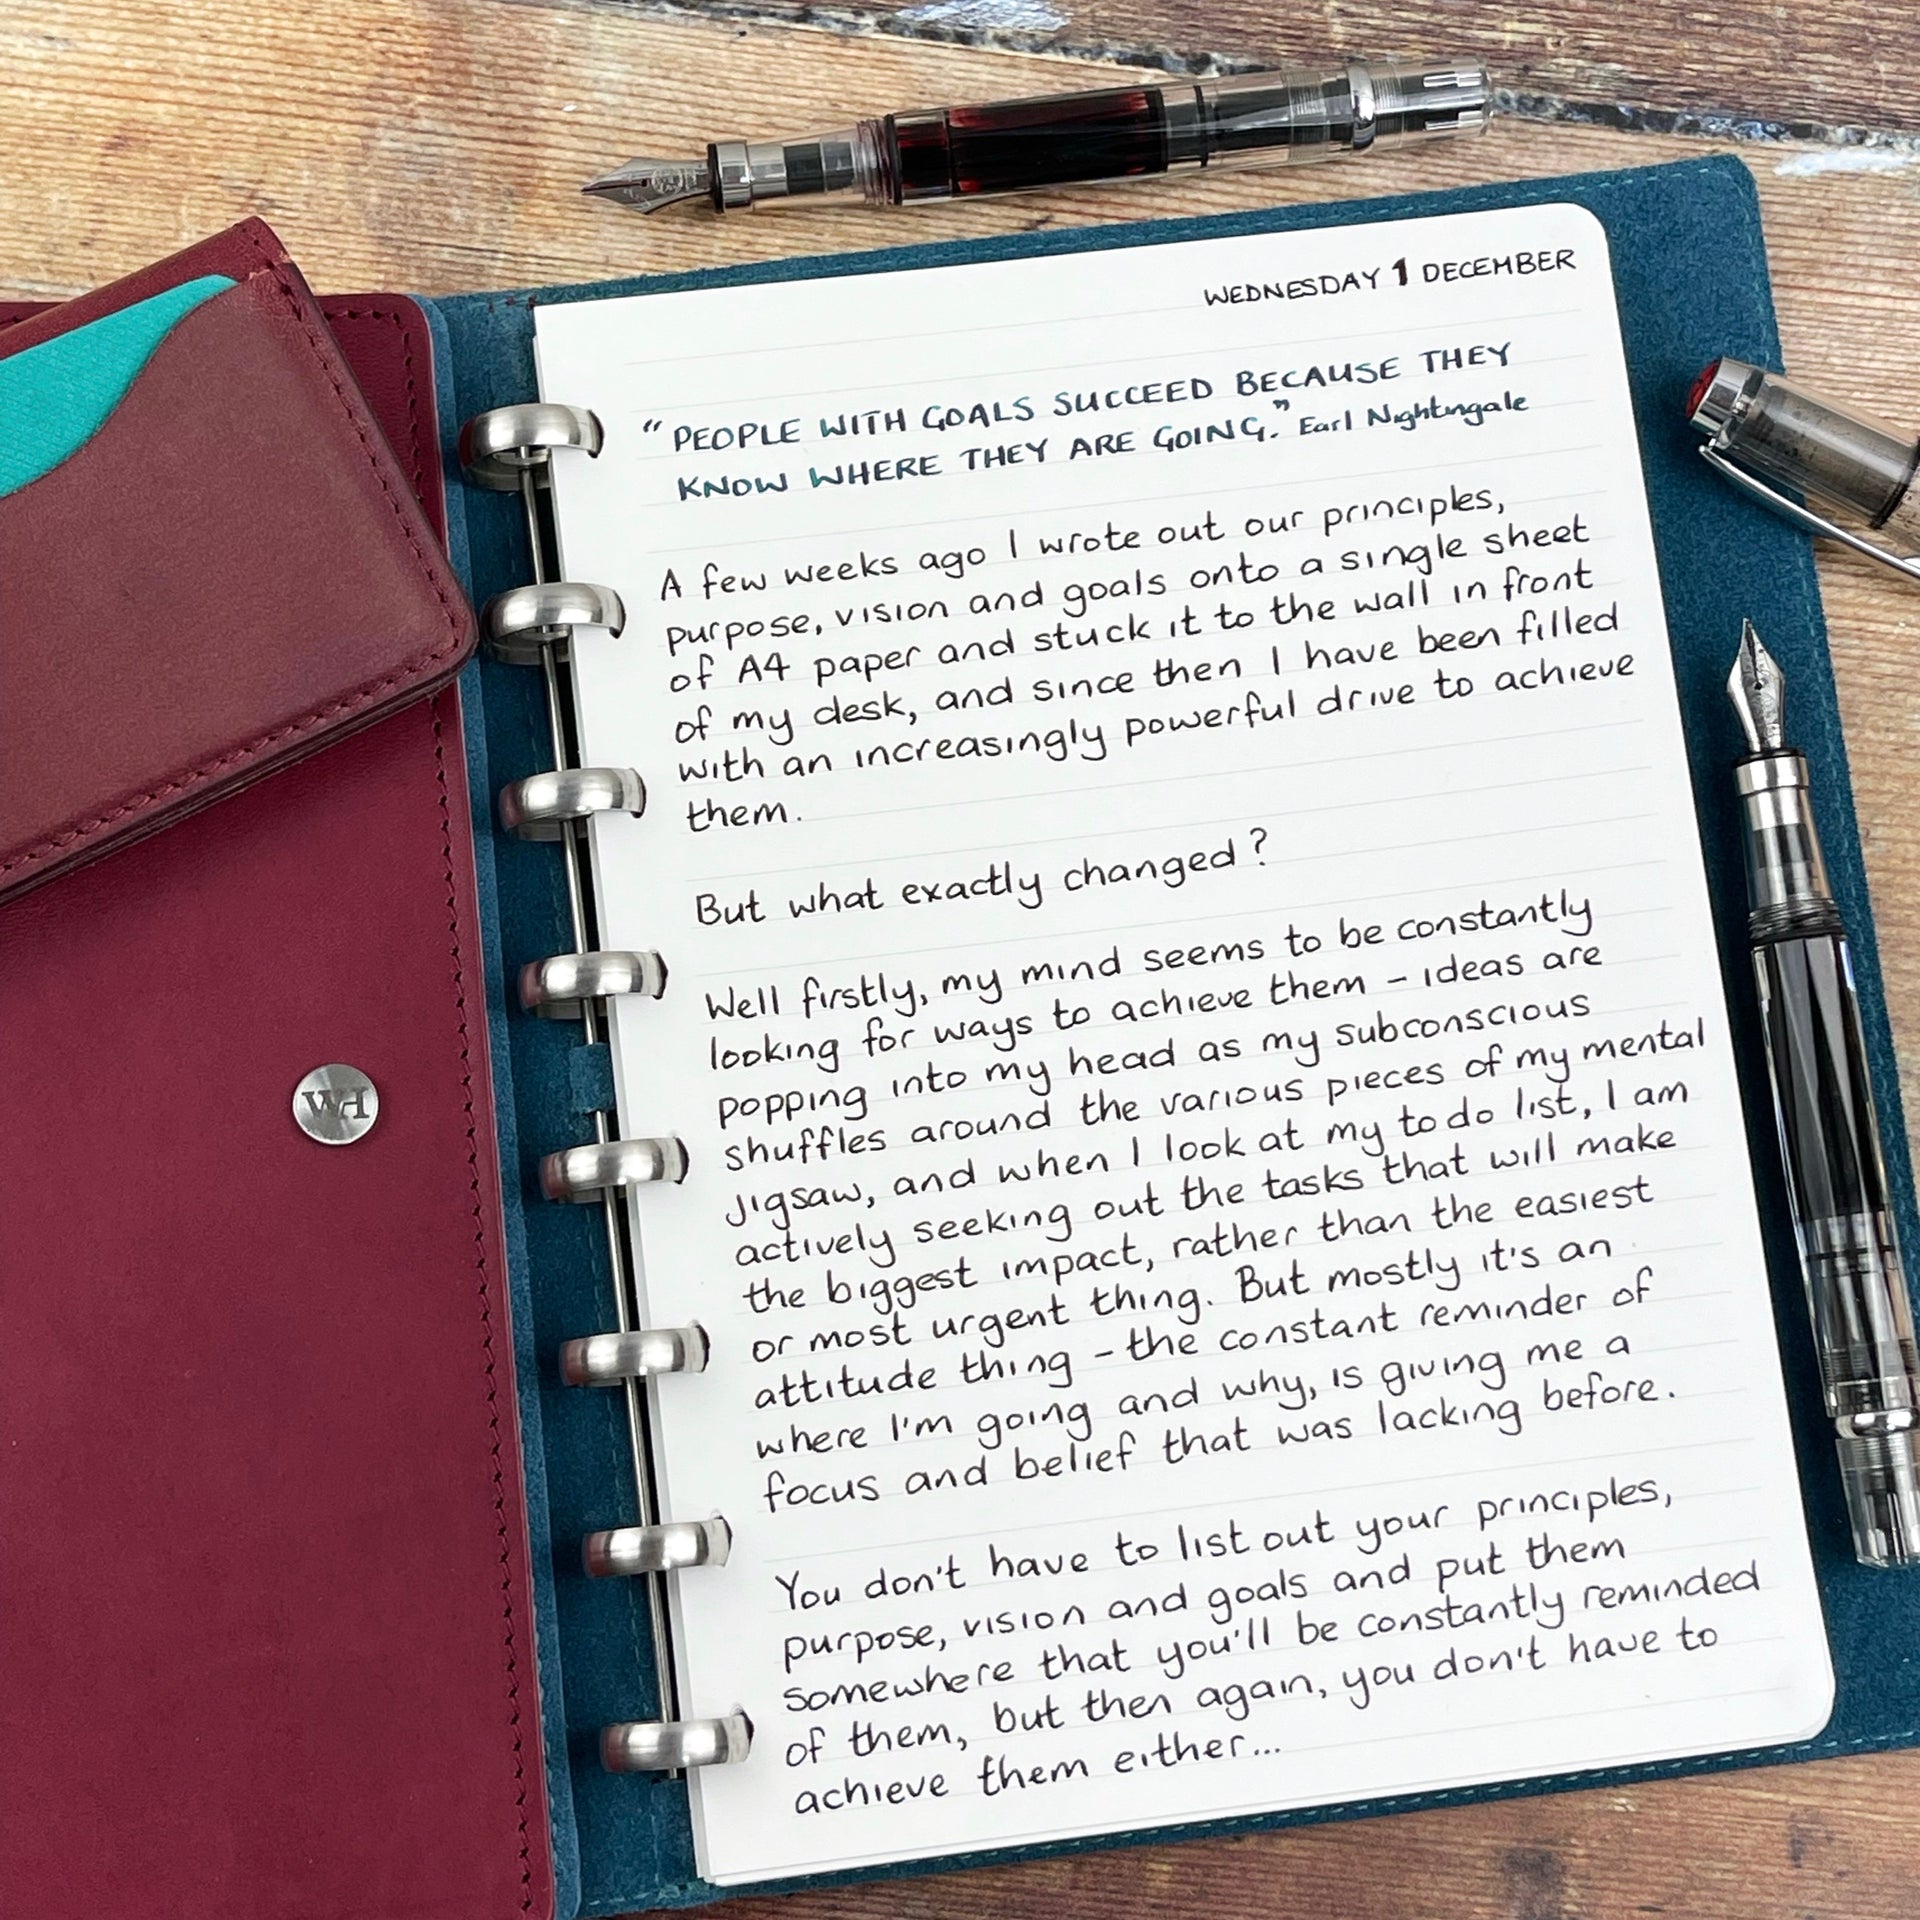 WEDNESDAY 1 DECEMBER
"PEOPLE WITH GOALS SUCCEED BECAUSE THEY
KNOW WHERE THEY ARE GOING." Earl Nightingale
A few weeks ago I wrote out our principles,
purpose, vision and goals onto a single sheet
of A4 paper and stuck it to the wall in front
of my desk, and since then I have been filled
with an increasingly powerful drive to achieve
them.
But what exactly changed?
Well firstly, my mind seems to be constantly
looking for ways to achieve them - ideas are
popping into my head as my subconscious
shuffles around the various pieces of my mental
jigsaw, and when I look at my to do list, I am
actively seeking out the tasks that will make
the biggest impact, rather than the easiest
or most urgent thing. But mostly it's an
attitude thing - the constant reminder of
where I'm going and why, is giving me a
focus and belief that was lacking before.
You don't have to list out your principles,
purpose, vision and goals and put them
somewhere that you'll be constantly reminded
of them, but then again, you don't have to
achieve them either...
WH